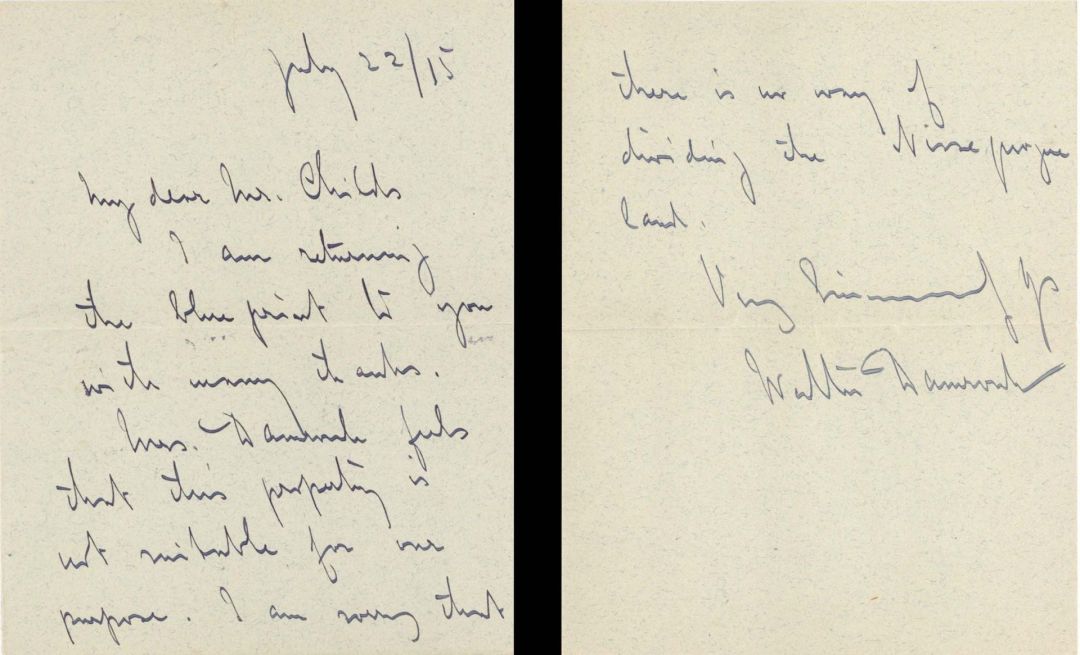 July 22/15
My dear Mr. Childs
I am returning
the blue print to you
with many thanks.
Mrs. Damrosch feels
that this property is
not suitable for our
purpose. I am sorry that
there is no way of
dividing the
land.
Very sincerely yrs
Walter Damrosch